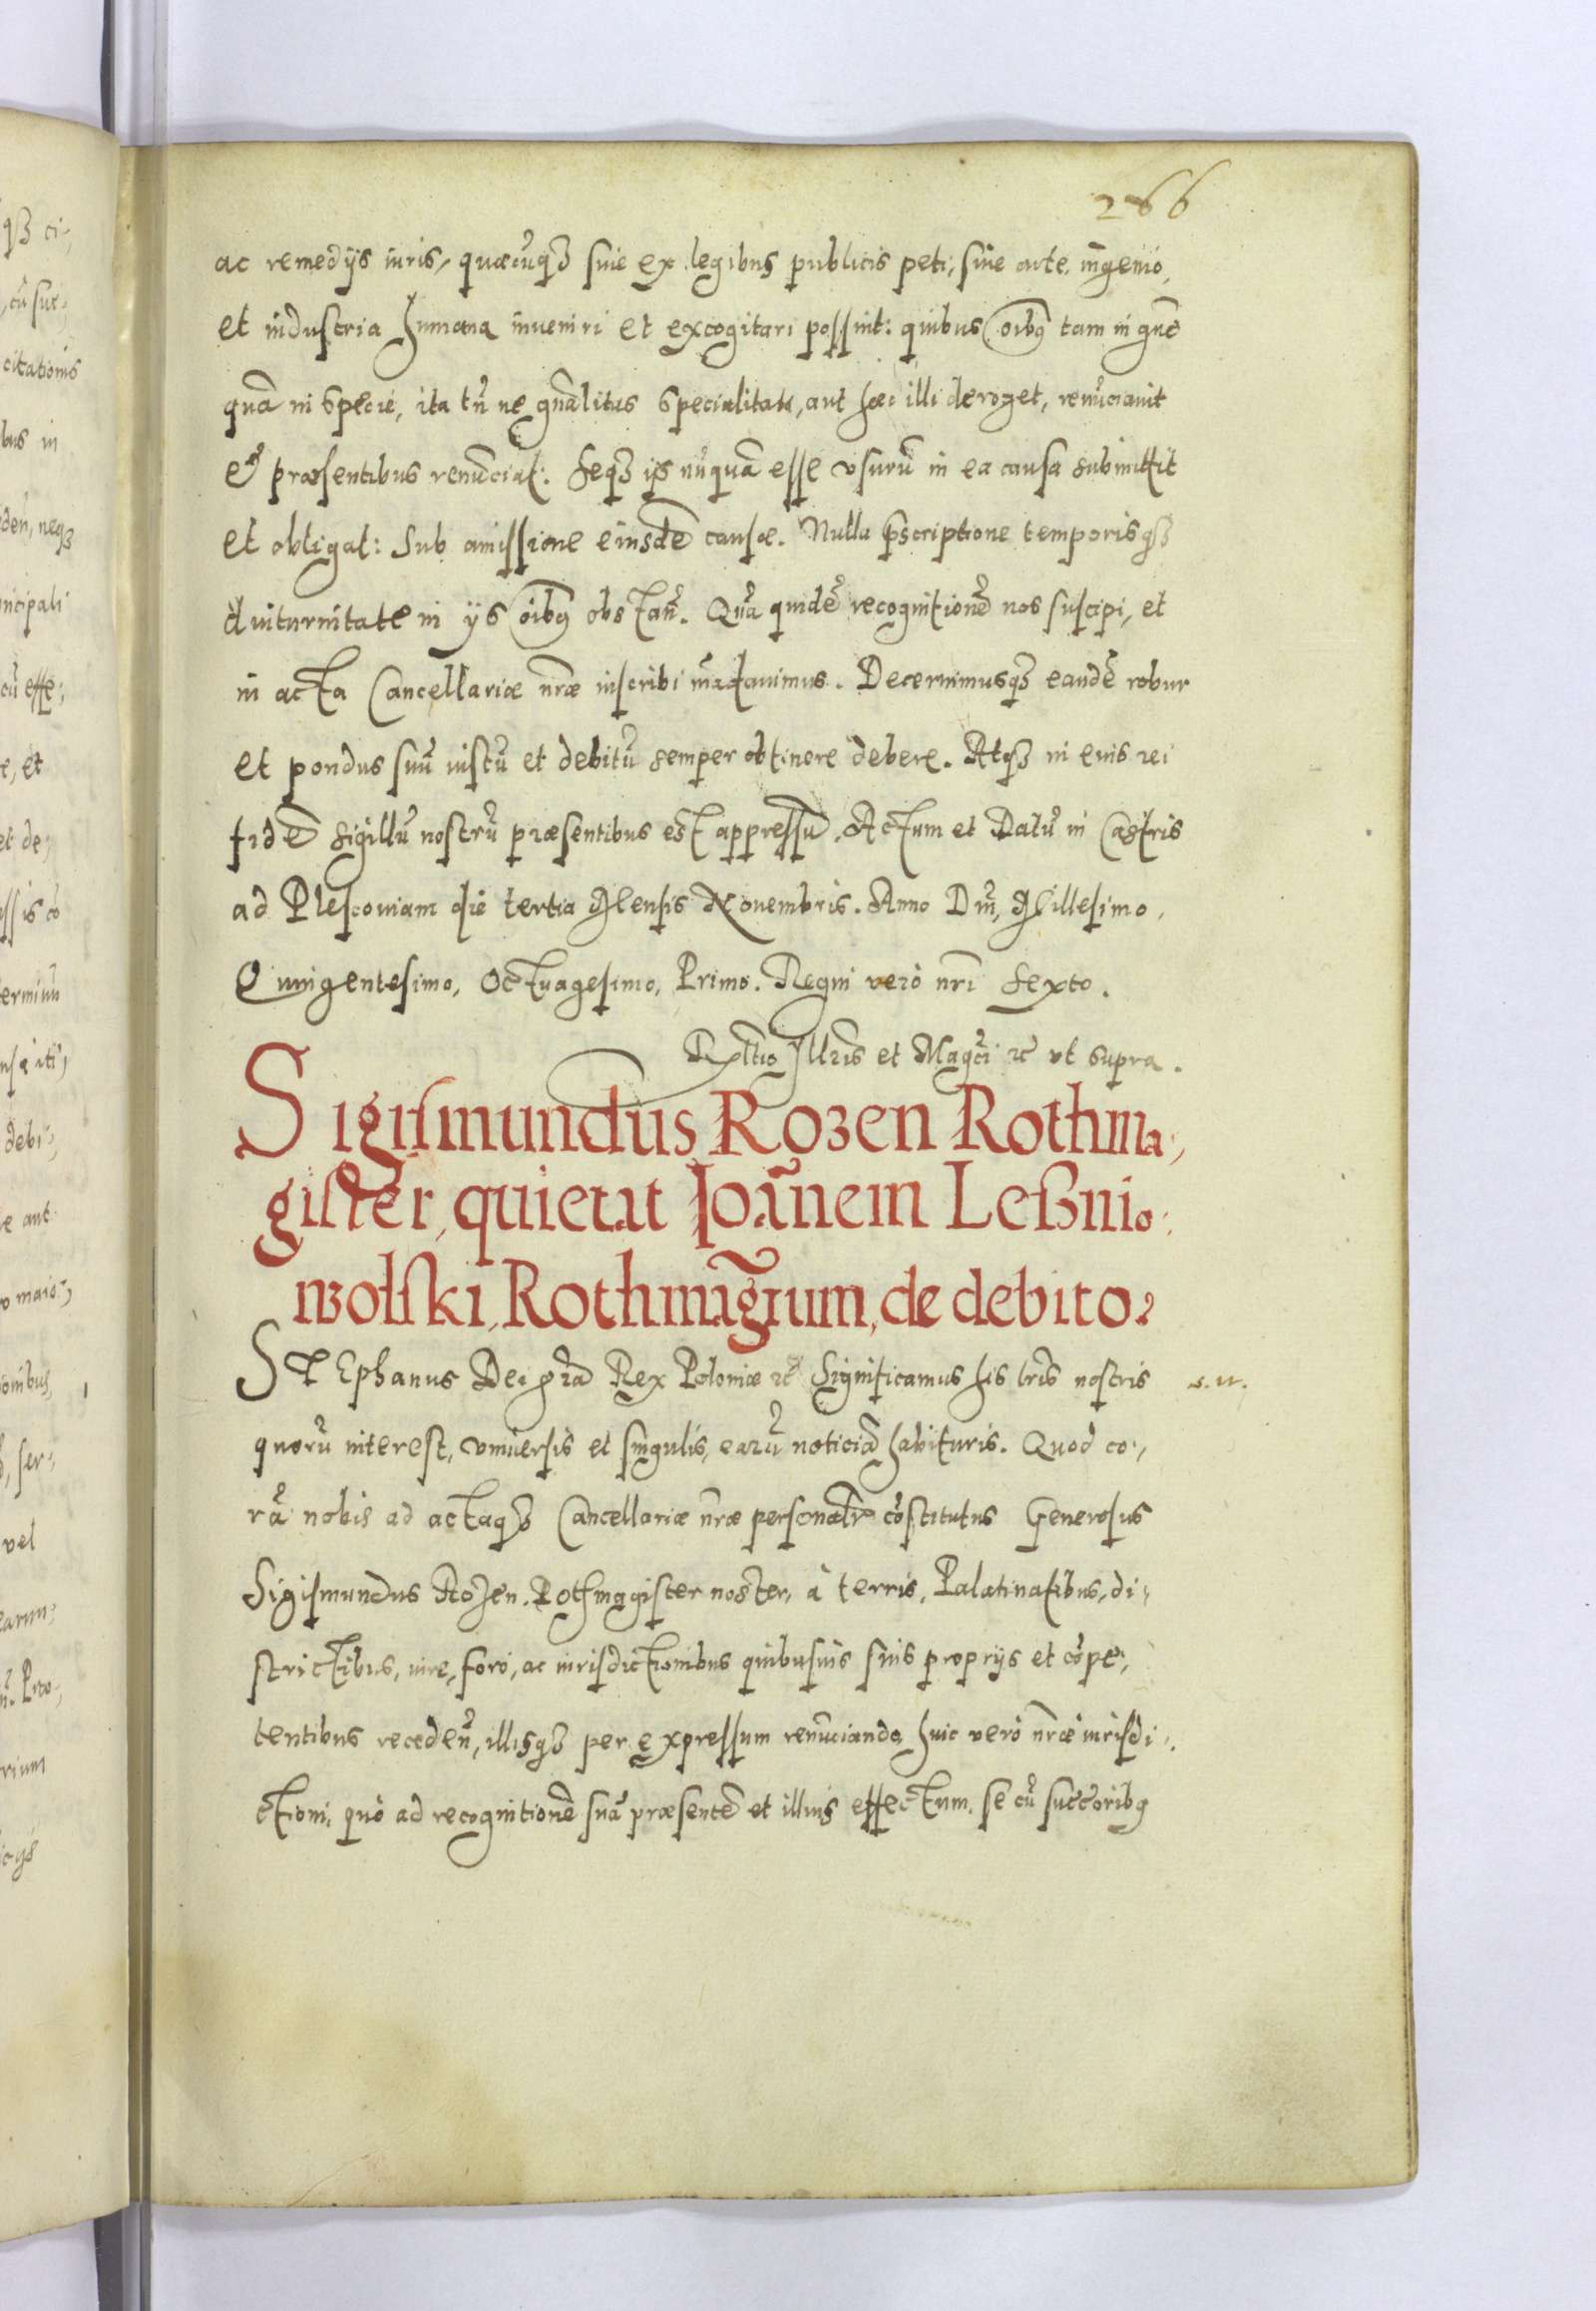 266
ac remedijs iuris, quæcũq₃ siue ex legibus publicis peti, siue arte, ingenio,
et industria humana inueniri et excogitari possint: quibus oĩbꝰ tam in gñe
quã in specie, ita tñ ne gñalitas specialitati, aut hæc illi deroget, renũciauit
et præsentibus renũciat: seq₃ ijs nũquã esse vsurũ in ea causa submittit
et obligat: sub amissione eiusdẽ causæ. Nulla p̃scriptione temporisq₃
diuturnitate in ijs oĩbꝰ obstañ. Quã quidẽ recognitionẽ nos suscipi, et
in acta Cancellariæ nr̃æ inscribi mãdauimus. Decernimusq₃ eandẽ robur
et pondus suũ iustũ et debitũ semper obtinere debere. Atq₃ in euis rei
fidẽ sigillũ nostrũ præsentibus est appressũ. Actum et Datũ in Castris
ad Plescouiam die tertia Mensis Nouembris. Anno Dñi, Millesimo,
Quingentesimo, Octuagesimo, Primo. Regni verò nr̃i sexto.
Rltio Illr̃is et Magc̃i ꝛc̃ vt supra.
Sigismundus Rozen Rothma,
gister, quietat Joãnem Leßnio,
wolski, Rothmag̃rum, de debito.
STEphanus Dei gr̃a Rex Poloniæ ꝛc̃ Significamus his lr̃is nostris
s. n.
quorũ interest, vniuersis et singulis, earũ noticiã habituris. Quod co,
rã nobis ad actaq₃ Cancellariæ nr̃æ personalr̃ cõstitutus Generosus
Sigismundus Rozen. Rothmagister noster, à terris, Palatinatibus, di,
strictibus, iure, foro, ac iurisdictionibus quibusuis suis proprijs et cõpe,
tentibus recedeñ, illisq₃ per expressum renũciando, huic verò nr̃æ iurisdi,
ctioni, quò ad recognitionẽ suã præsentẽ et illius effectum, se cũ succ̃oribꝰ